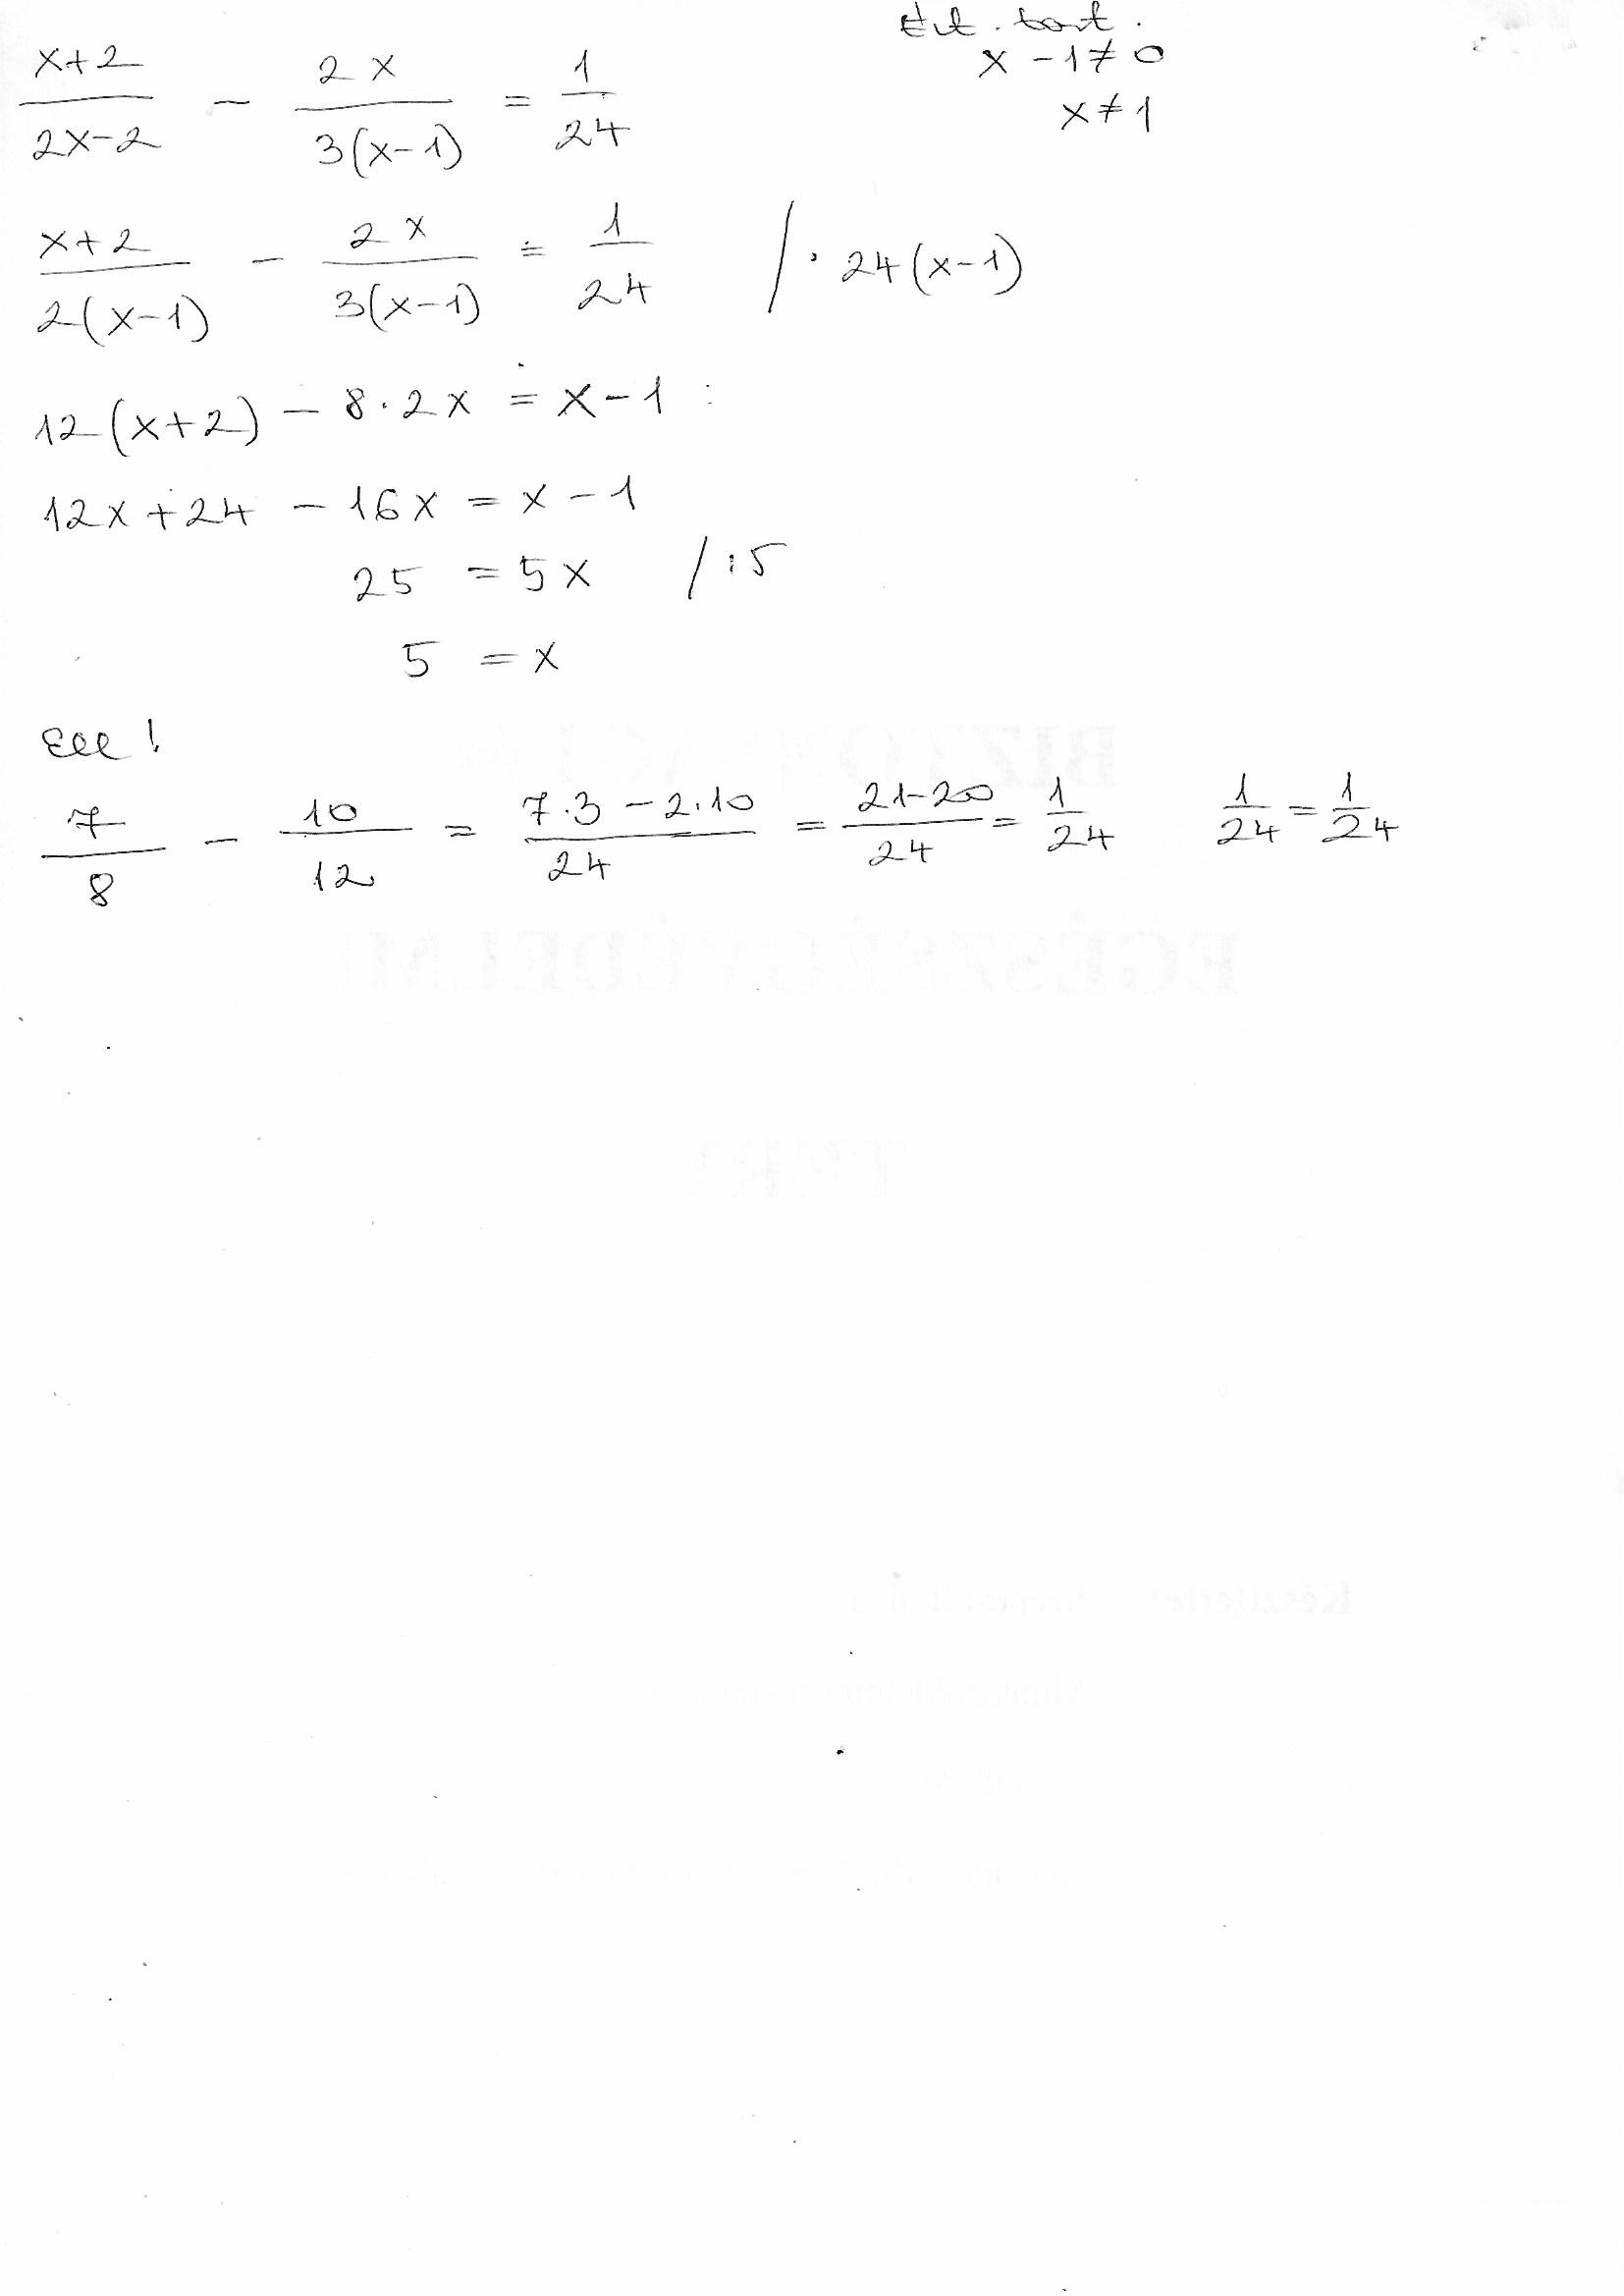 Ért. tart.
x - 1 ≠ 0
x ≠ 1
(x+2)/(2x-2) - 2x/(3(x-1)) = 1/24
(x+2)/(2(x-1)) - 2x/(3(x-1)) = 1/24 / · 24(x-1)
12(x+2) - 8·2x = x-1
12x + 24 - 16x = x - 1
25 = 5x /:5
5 = x
Ell!
7/8 - 10/12 = (7·3 - 2·10)/24 = (21-20)/24 = 1/24 1/24 = 1/24